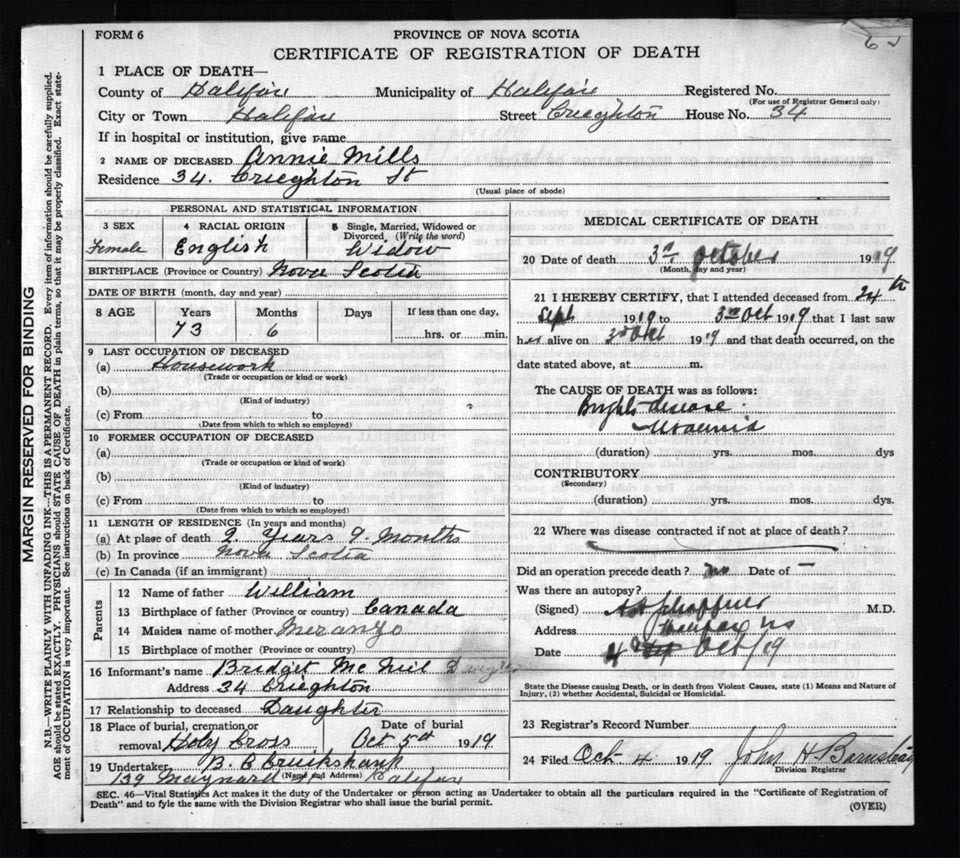 FORM 6
PROVINCE OF NOVA SCOTIA
CERTIFICATE OF REGISTRATION OF DEATH
1 PLACE OF DEATH—
County of Halifax Municipality of Halifax Registered No.
(For use of Registrar General only)
City or Town Halifax Street Crieghton House No. 34
If in hospital or institution, give name
2 NAME OF DECEASED Annie Mills
Residence 34. Crieghton St
(Usual place of abode)
PERSONAL AND STATISTICAL INFORMATION
3 SEX 4 RACIAL ORIGIN 5 Single, Married, Widowed or Divorced. (Write the word)
Female English Widow
BIRTHPLACE (Province or Country) Nova Scotia
DATE OF BIRTH (month, day and year)
8 AGE Years Months Days If less than one day,
73 6 hrs. or min.
9 LAST OCCUPATION OF DECEASED
(a) Housework
(Trade or occupation or kind or work)
(b)
(Kind of industry)
(c) From to
(Date from which to which so employed)
10 FORMER OCCUPATION OF DECEASED
(a)
(Trade or occupation or kind of work)
(b)
(Kind of industry)
(c) From to
(Date from which to which so employed)
11 LENGTH OF RESIDENCE (In years and months)
(a) At place of death 2 Years 9 Months
(b) In province Nova Scotia
(c) In Canada (if an immigrant)
Parents
12 Name of father William
13 Birthplace of father (Province or country) Canada
14 Maiden name of mother
15 Birthplace of mother (Province or country)
16 Informant's name Bridget Mc Neil
Address 34 Crieghton
17 Relationship to deceased Daughter
18 Place of burial, cremation or Date of burial
removal Holy Cross Oct 5th 1919
19 Undertaker B. E Cruikshank
(Name and Address)
139 Maynard Halifax
MEDICAL CERTIFICATE OF DEATH
20 Date of death 3rd October 1919
(Month, day and year)
21 I HEREBY CERTIFY, that I attended deceased from 24th
Sept 1919 to 3rd Oct 1919 that I last saw
her alive on 3rd Oct 1919 and that death occurred, on the
date stated above, at m.
The CAUSE OF DEATH was as follows:
Brights disease
Uraemia
(duration) yrs. mos. dys
CONTRIBUTORY
(Secondary)
(duration) yrs. mos. dys.
22 Where was disease contracted if not at place of death?
Did an operation precede death? no Date of —
Was there an autopsy?
(Signed) M.D.
Address Halifax NS
Date 4th Oct/19
State the Disease causing Death, or in death from Violent Causes, state (1) Means and Nature of
Injury, (2) whether Accidental, Suicidal or Homicidal.
23 Registrar's Record Number
24 Filed Oct 4 1919 John H Barnstead
Division Registrar
SEC. 46—Vital Statistics Act makes it the duty of the Undertaker or person acting as Undertaker to obtain all the particulars required in the "Certificate of Registration of
Death" and to fyle the same with the Division Registrar who shall issue the burial permit.
(OVER)
MARGIN RESERVED FOR BINDING
N.B.—WRITE PLAINLY WITH UNFADING INK—THIS IS A PERMANENT RECORD. Every item of information should be carefully supplied.
AGE should be stated EXACTLY. PHYSICIANS should STATE CAUSE OF DEATH in plain terms, so that it may be properly classified. Exact statement of OCCUPATION is very important. See instructions on back of Certificate.